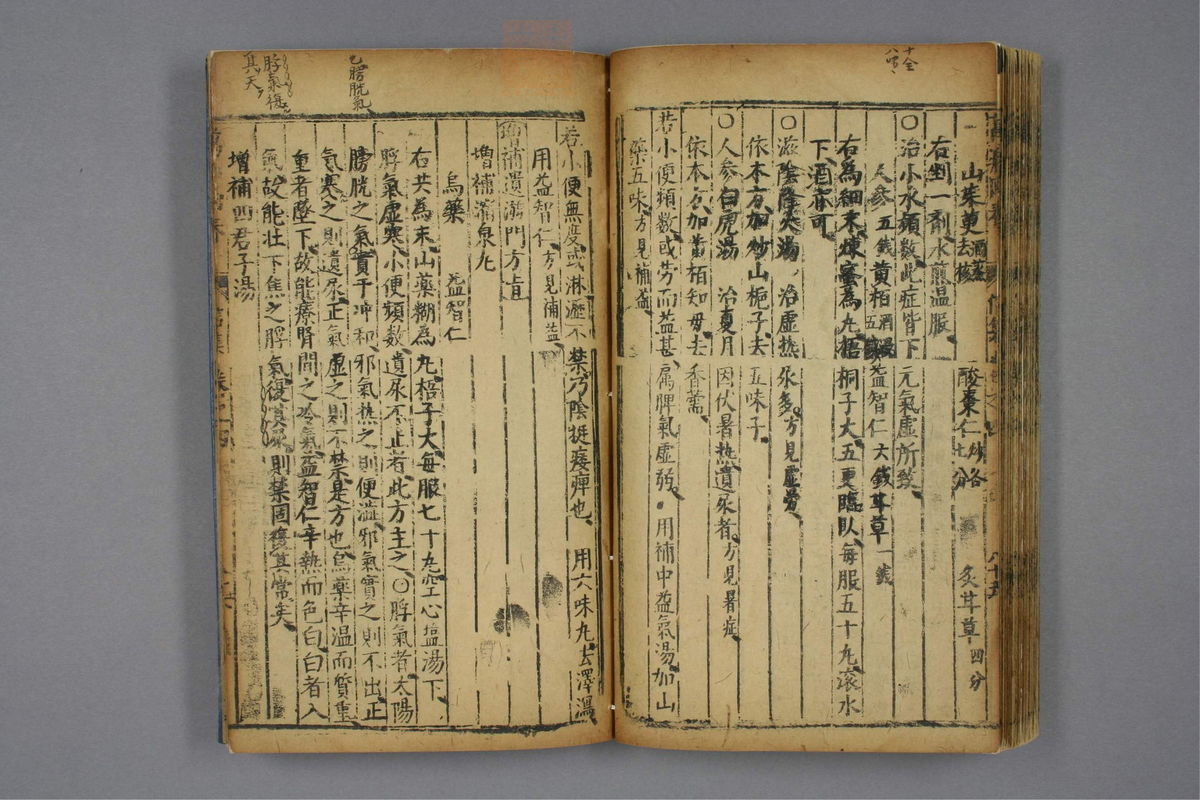 十全
八味
山茱萸酒蒸去核 酸棗仁炒各七分 炙甘草四分
右剉一劑水煎溫服
〇治小水頻數此症皆下元氣虛所致
人參五錢黃栢酒浸五錢益智仁六錢甘草一錢
右為細末煉蜜為丸梧桐子大五更臨臥每服五十丸滚水
下酒亦可
〇滋陰降火湯 治虛热尿多方見虛勞
依本方加炒山梔子去五味子
〇人參白虎湯 治夏月因伏暑热遺尿者方見暑症
依本方加黃栢知毋去香薷
若小便頻數或劳而益甚属脾氣虛弱用補中益氣湯加山
藥五味方見補益
乙膀胱氣
脬氣復
其天
若小便無度或淋瀝不禁乃陰挺痿痺也用六味丸去澤瀉
用益智仁方見補益
增補遺溺門方旨
增補濇泉丸
烏藥 益智仁
右共為末山藥糊為丸梧子大每服七十丸空心塩湯下
脬氣虛寒小便頻數遺尿不止者此方主之〇脬氣者太陽
膀胱之氣貴于冲和邪氣热之則便澁邪氣實之則不出正
氣寒之則遺尿正氣虛之則不禁是方也烏藥辛溫而質重
重者墜下故能療腎間之冷氣益智仁辛熱而色白白者入
氣故能壮下焦之脬氣復其 則禁固復其常矣
增補四君子湯